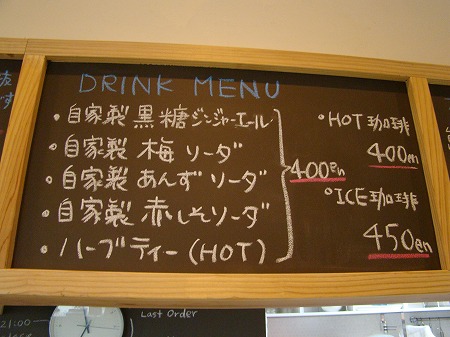 DRINK MENU
・自家製 黒糖ジンジャーエール
・自家製 梅 ソーダ
・自家製 あんず ソーダ
・自家製 赤しそソーダ
・ハーブティー(HOT)
400en
・HOT 珈琲
400en
・ICE 珈琲
450en
21:00
Last Order